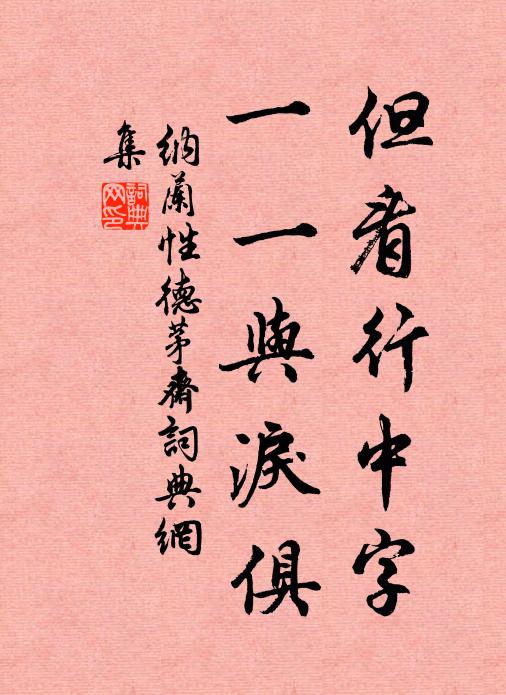 但看行中字
一一與淚俱
納蘭性德茅齋詞典網
集
詞典
網印